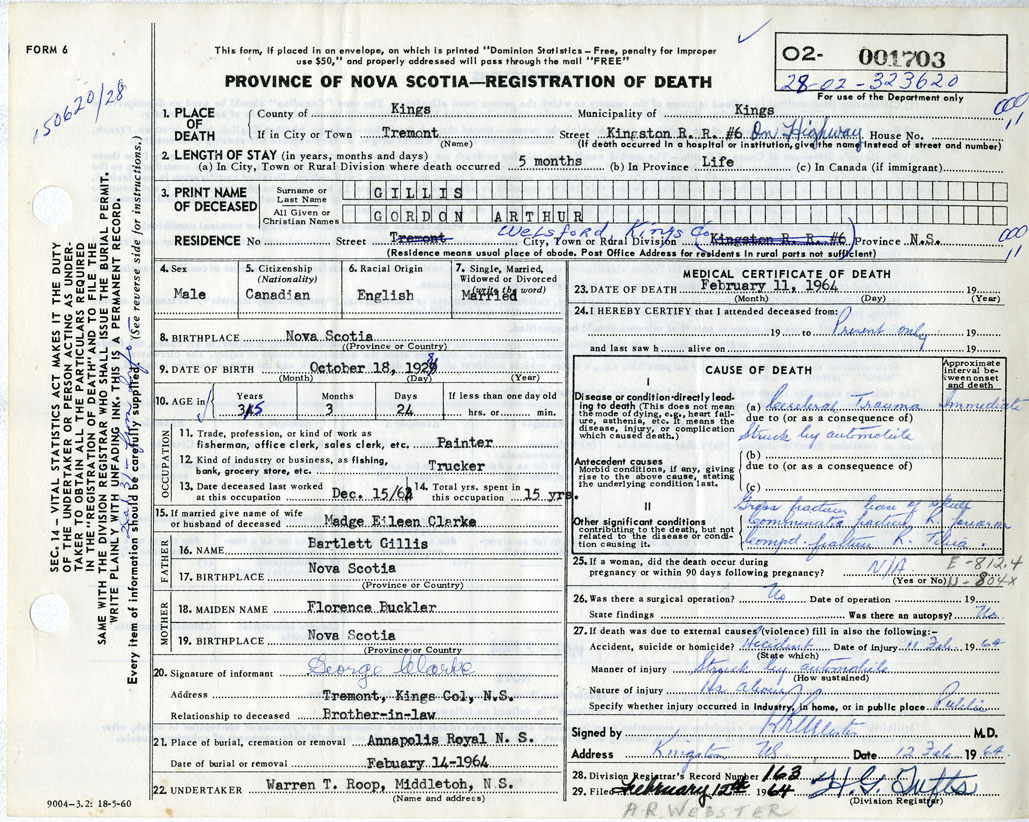 FORM 6
This form, if placed in an envelope, on which is printed "Dominion Statistics – Free, penalty for improper
use $50," and properly addressed will pass through the mail "FREE"
PROVINCE OF NOVA SCOTIA—REGISTRATION OF DEATH
02- 001703
28-02-323620
For use of the Department only
150620/28
000
11
1. PLACE OF DEATH
County of Kings Municipality of Kings
If in City or Town Tremont Street Kingston R. R. #6 On Highway House No.
(Name) (If death occurred in a hospital or institution, give the name instead of street and number)
2. LENGTH OF STAY (in years, months and days)
(a) In City, Town or Rural Division where death occurred 5 months (b) In Province Life (c) In Canada (if immigrant)
3. PRINT NAME OF DECEASED
Surname or Last Name GILLIS
All Given or Christian Names GORDON ARTHUR
Welsford Kings Co
RESIDENCE No Street Tremont City, Town or Rural Division Kingston R. R. #6 Province N.S.
(Residence means usual place of abode. Post Office Address for residents in rural parts not sufficient)
000
11
4. Sex
Male
5. Citizenship
(Nationality)
Canadian
6. Racial Origin
English
7. Single, Married,
Widowed or Divorced
(write the word)
Married
8. BIRTHPLACE Nova Scotia
(Province or Country)
9. DATE OF BIRTH October 18, 1929 8
(Month) (Day) (Year)
10. AGE in
Years Months Days If less than one day old
345 3 24 hrs. or min.
OCCUPATION
11. Trade, profession, or kind of work as
fisherman, office clerk, sales clerk, etc. Painter
12. Kind of industry or business, as fishing,
bank, grocery store, etc. Trucker
13. Date deceased last worked
at this occupation Dec. 15/63
14. Total yrs. spent in
this occupation 15 yrs.
15. If married give name of wife
or husband of deceased Madge Eileen Clarke
FATHER
16. NAME Bartlett Gillis
17. BIRTHPLACE Nova Scotia
(Province or Country)
MOTHER
18. MAIDEN NAME Florence Buckler
19. BIRTHPLACE Nova Scotia
(Province or Country)
20. Signature of informant George Clarke
Address Tremont, Kings Col, N.S.
Relationship to deceased Brother-in-law
21. Place of burial, cremation or removal Annapolis Royal N. S.
Date of burial or removal Febuary 14-1964
22. UNDERTAKER Warren T. Roop, Middletoh, N.S.
(Name and address)
9004–3.2: 18-5-60
MEDICAL CERTIFICATE OF DEATH
23. DATE OF DEATH February 11, 1964 19
(Month) (Day) (Year)
24. I HEREBY CERTIFY that I attended deceased from:
19 to Present only 19
and last saw h alive on 19
CAUSE OF DEATH
Approximate
interval be-
tween onset
and death
I
Disease or condition directly lead-
ing to death (This does not mean
the mode of dying, e.g., heart fail-
ure, asthenia, etc. It means the
disease, injury, or complication
which caused death.)
(a) Accidental Trauma Immediate
due to (or as a consequence of)
Struck by automobile
Antecedent causes
Morbid conditions, if any, giving
rise to the above cause, stating
the underlying condition last.
(b)
due to (or as a consequence of)
(c)
II
Other significant conditions
contributing to the death, but not
related to the disease or condi-
tion causing it.
Gross fracture base of skull
Comminuted fracture R. forearm
Compd. fracture R. Tibia.
25. If a woman, did the death occur during
pregnancy or within 90 days following pregnancy? N/A
(Yes or No)
E-812.4
N-804x
26. Was there a surgical operation? No Date of operation 19
State findings Was there an autopsy? No
27. If death was due to external causes (violence) fill in also the following:–
Accident, suicide or homicide? Accident Date of injury 11 Feb 1964
(State which)
Manner of injury Struck by automobile
(How sustained)
Nature of injury As above
Specify whether injury occurred in industry, in home, or in public place Public
Signed by M.D.
Address Kingston NS Date 12 Feb 1964
28. Division Registrar's Record Number 163
29. Filed February 12th 1964 H. G. Tufts
(Division Registrar)
A-R. WEBSTER
SEC. 14 – VITAL STATISTICS ACT MAKES IT THE DUTY
OF THE UNDERTAKER OR PERSON ACTING AS UNDER-
TAKER TO OBTAIN ALL THE PARTICULARS REQUIRED
IN THE "REGISTRATION OF DEATH" AND TO FILE THE
SAME WITH THE DIVISION REGISTRAR WHO SHALL ISSUE THE BURIAL PERMIT.
WRITE PLAINLY WITH UNFADING INK. THIS IS A PERMANENT RECORD.
Every item of information should be carefully supplied. (See reverse side for instructions.)